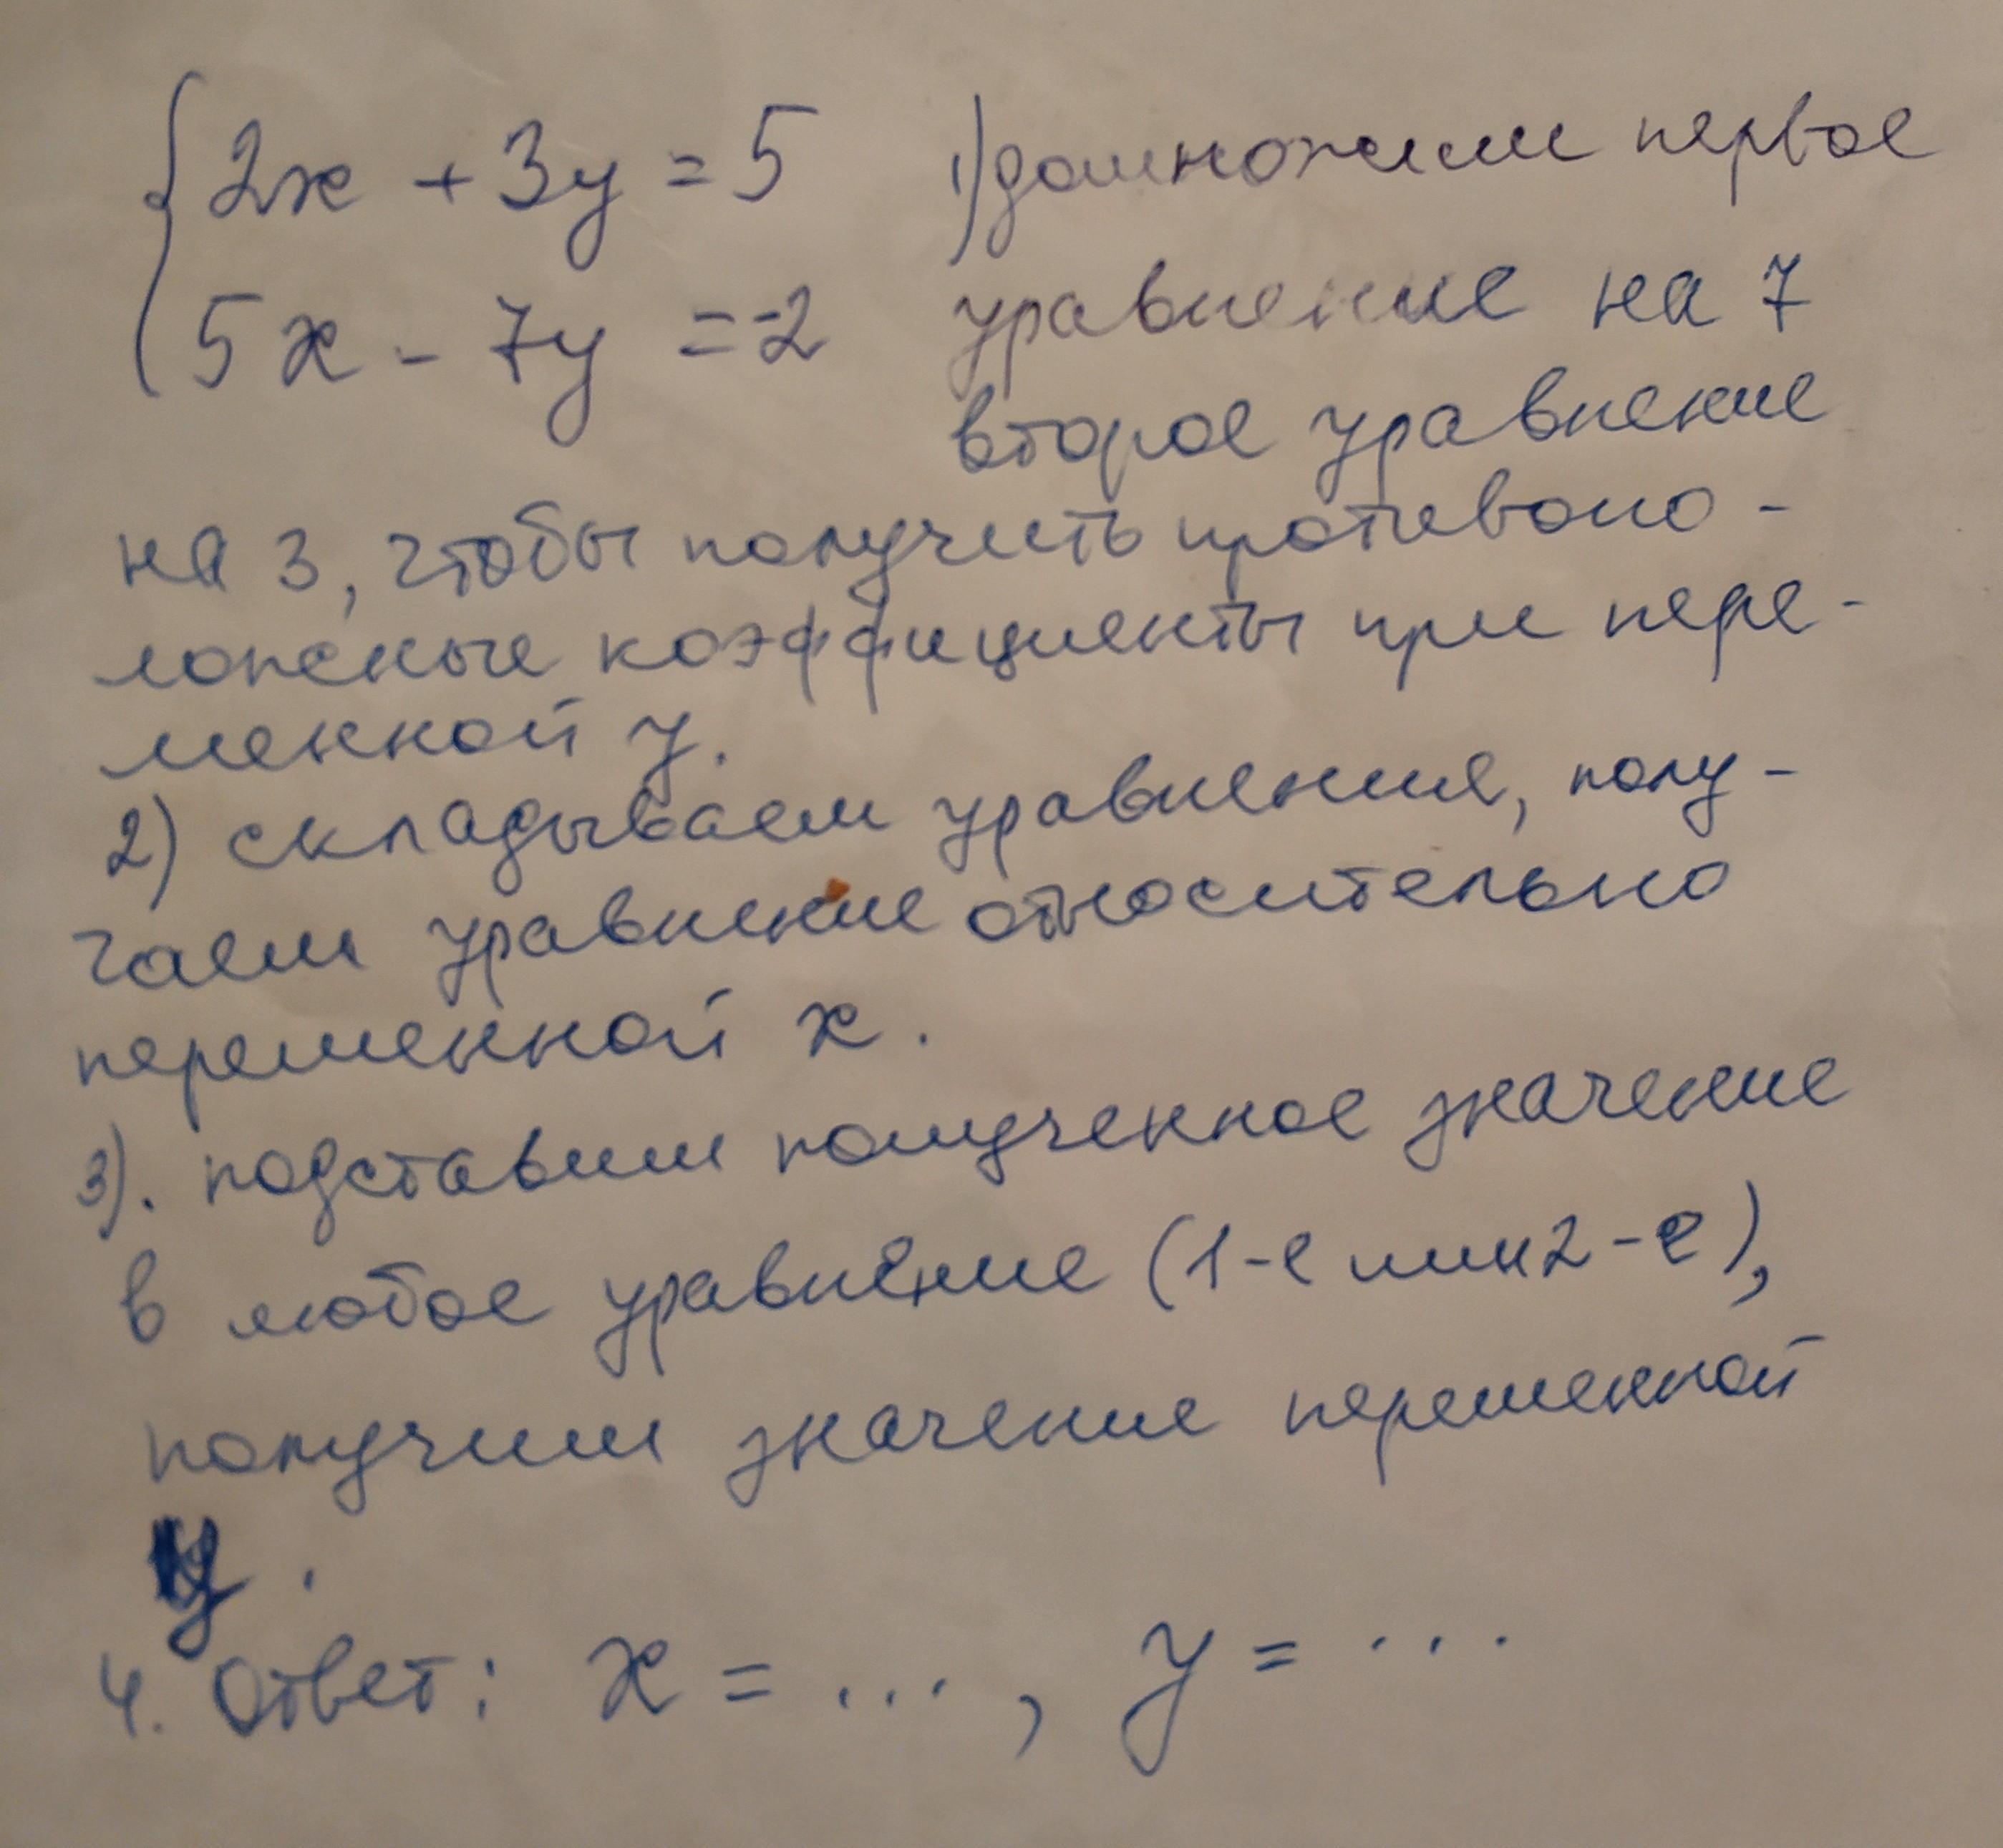 2x + 3y = 5 1) домножим первое
5x - 7y = -2 уравнение на 7
второе уравнение
на 3, чтобы получить противопо-
ложные коэффициенты при пере-
менной y.
2) складываем уравнения, полу-
чаем уравнение относительно
переменной x.
3). подставим полученное значение
в любое уравнение (1-е или 2-е),
получим значение переменной
y.
4. Ответ: x = ..., y = ...